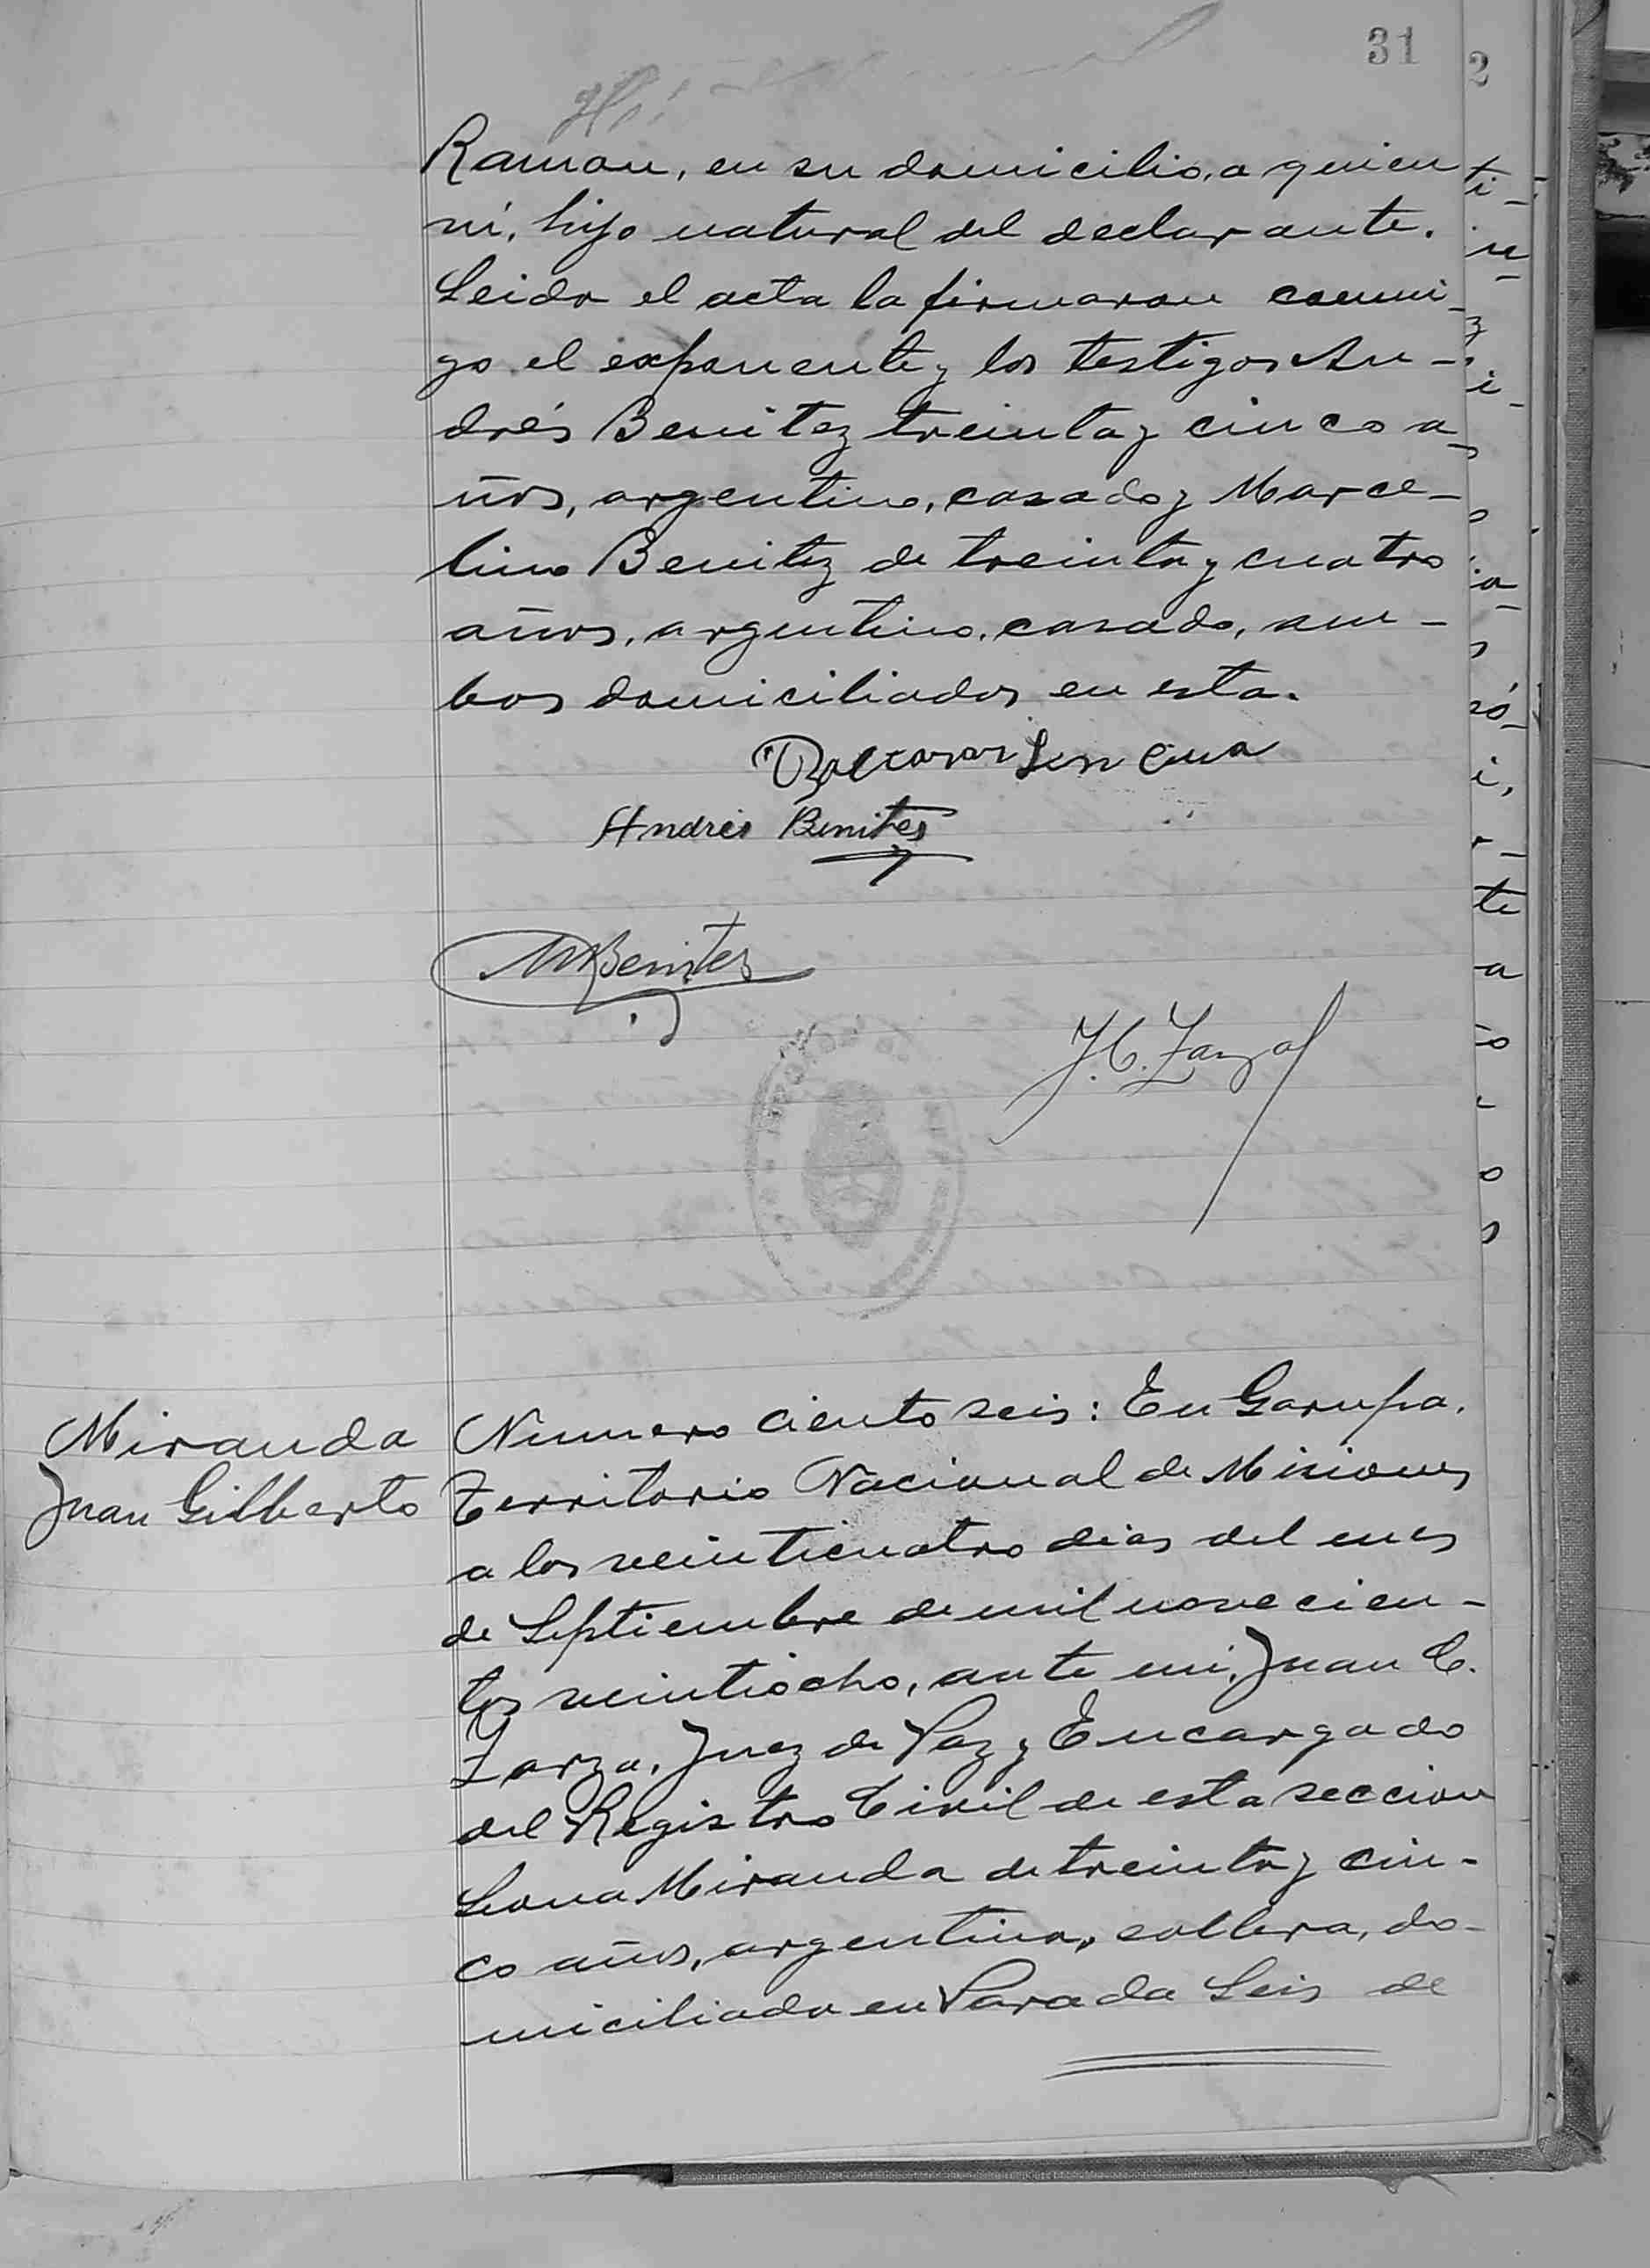 31
Ramon, en su domicilio, a quien
ví, hijo natural del declarante.
Leida el acta la firmaron conmi-
go el exponente y los testigos An-
drés Benitez treinta y cinco a-
ños, argentino, casado y Marce-
lino Benitez de treinta y cuatro
años, argentino, casado, am-
bos domiciliados en esta.
Andrés Benites
M Benitez
J. C. Zarza
Miranda
Juan Gilberto
Numero ciento seis: En Garupa,
Territorio Nacional de Misiones
a los veinticuatro dias del mes
de Septiembre de mil novecien-
tos veintiocho, ante mi, Juan C.
Zarza, Juez de Paz y Encargado
del Registro Civil de esta seccion
Leona Miranda de treinta y cin-
co años, argentina, soltera, do-
miciliada en Parada Leis de